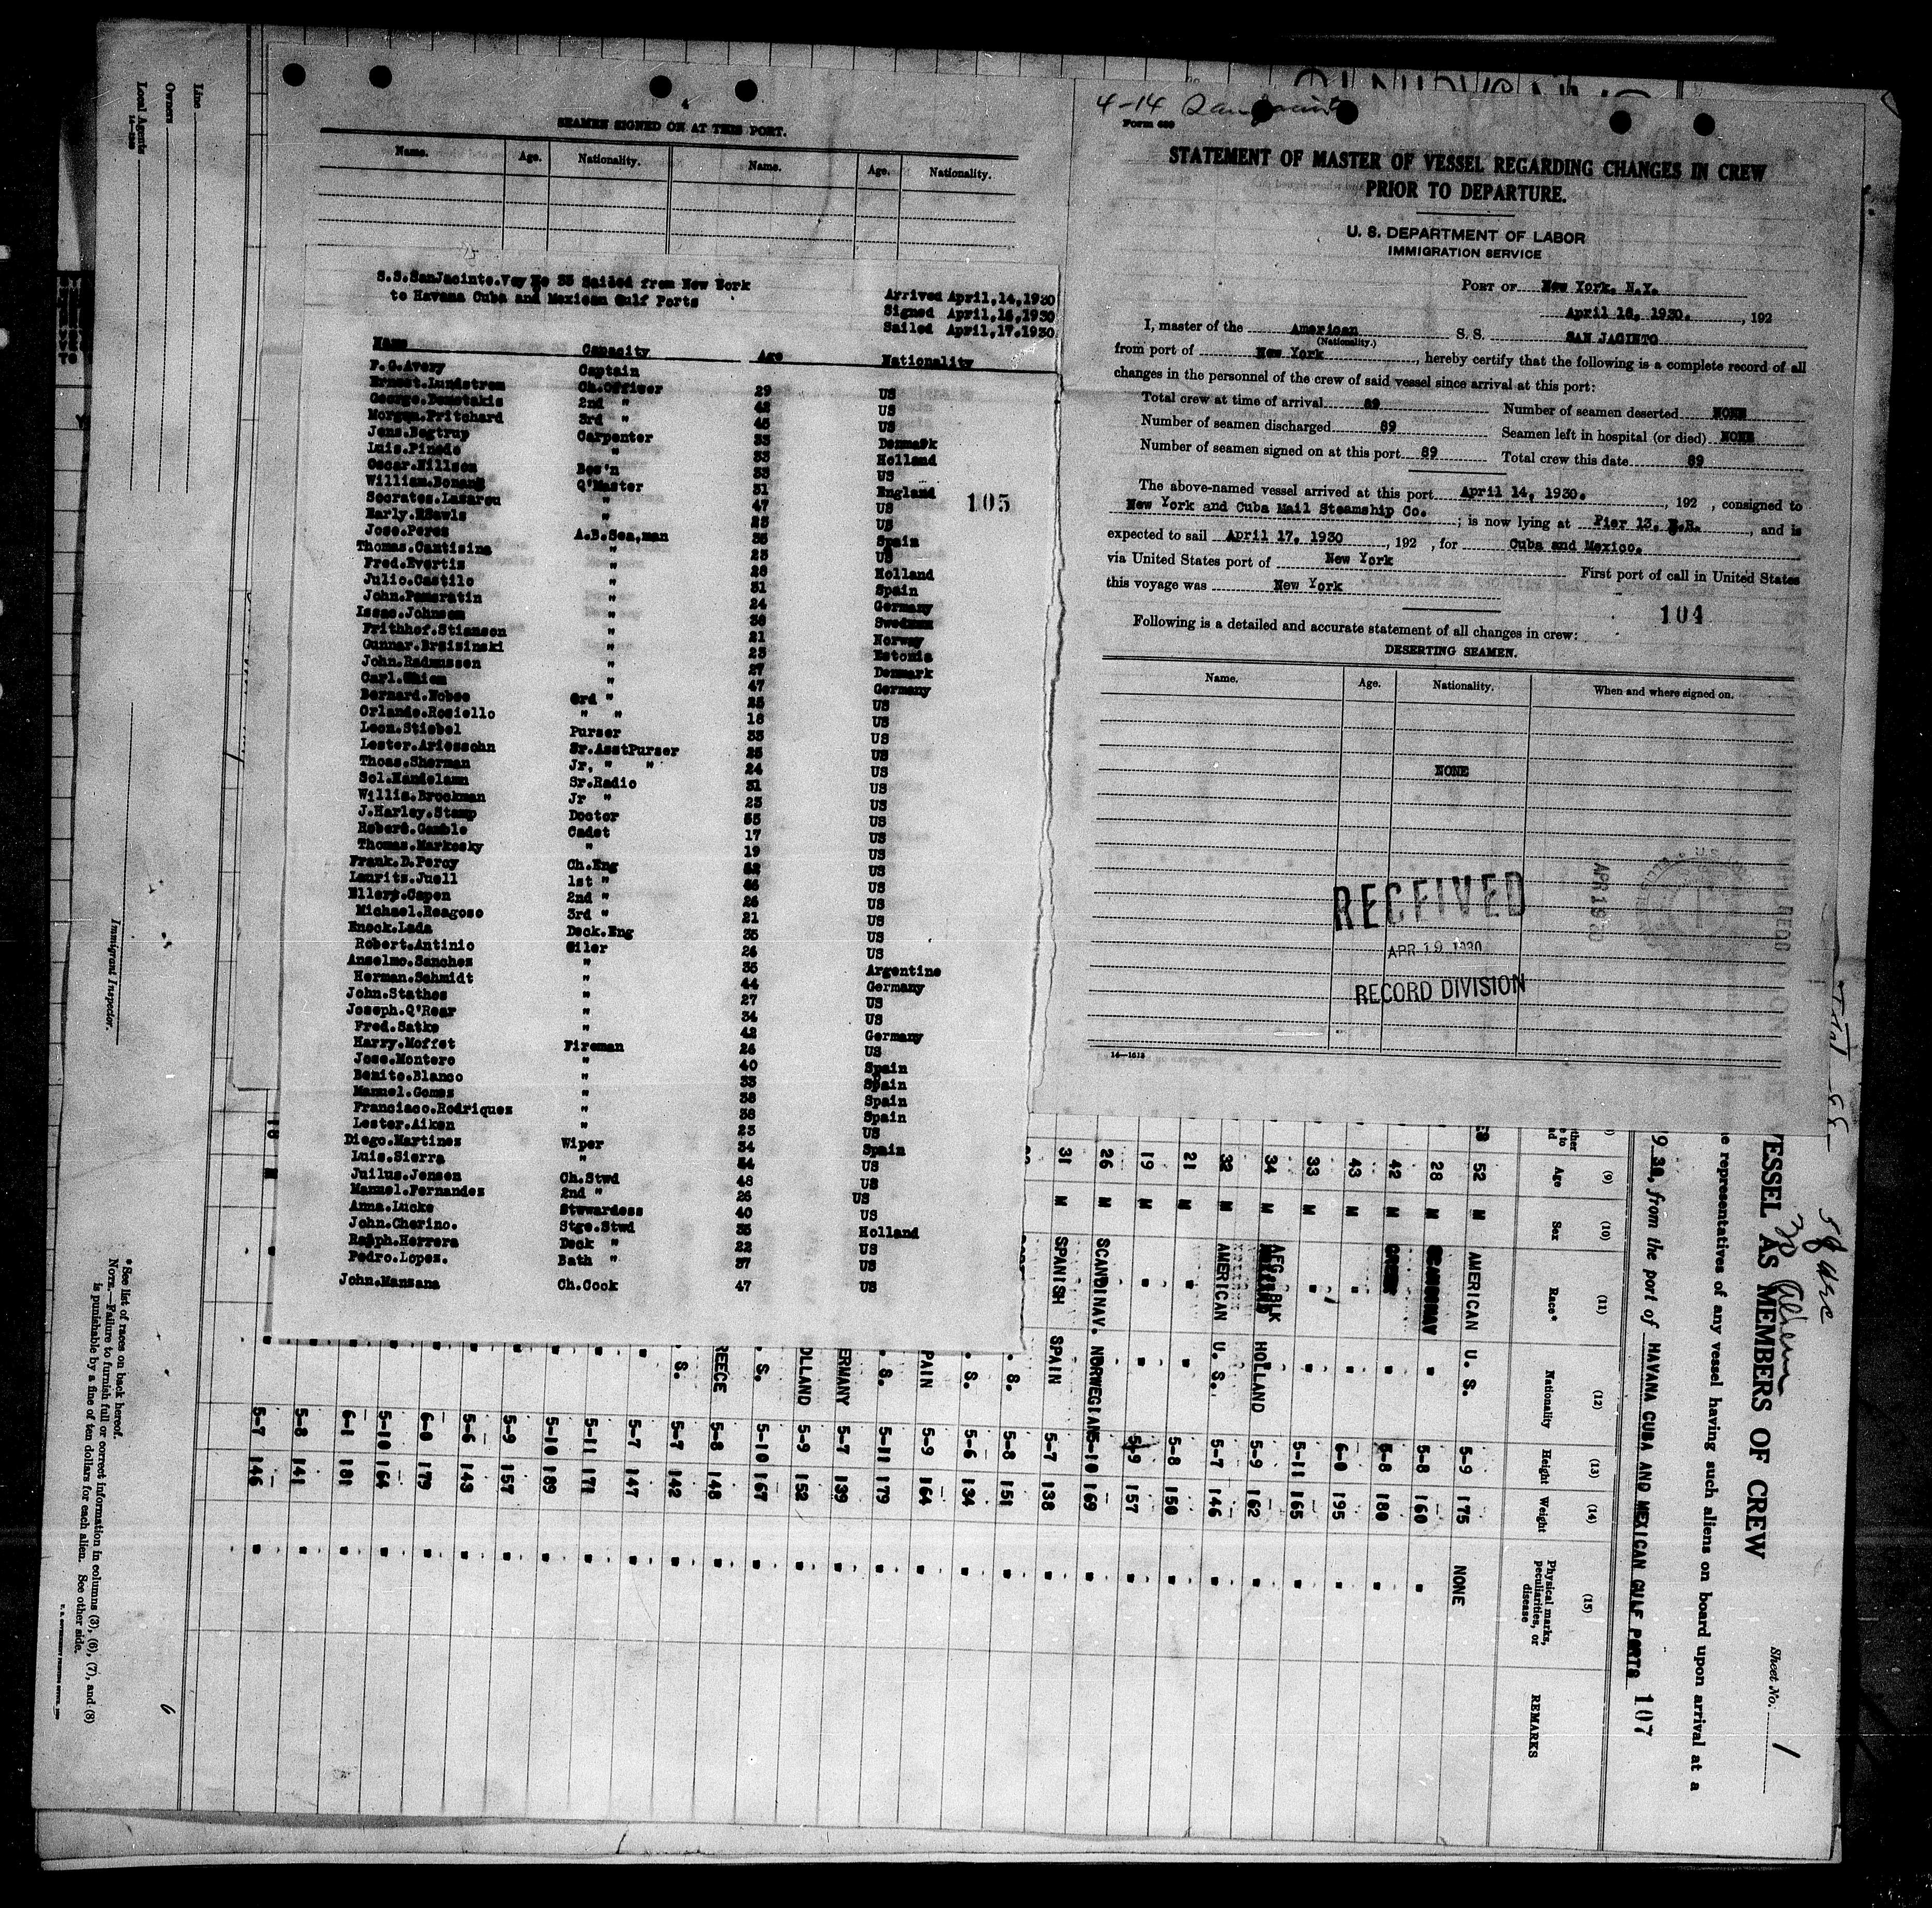 SEAMEN SIGNED ON AT THIS PORT.
Name. Age. Nationality. Name. Age. Nationality.
S.S.SanJacinto.Voy No 33 Sailed from New York
to Havana Cuba and Mexican Gulf Ports
Arrived April,14,1930
Signed April,16,1930
Sailed April,17.1930
Name Capacity Age Nationality
F.G.Avery Captain
Ernest.Lundstrom Ch.Officer 29 US
George.Demetakis 2nd " 42 US
Morgan.Pritchard 3rd " 45 US
Jens.Bagtrup Carpenter 33 Denmark
Luis.Pinedo " 33 Holland
Oscar.Nillson Bos'n 33 US
William.Bonang Q'Master 31 England
105
Socrates.Lazarou " 47 US
Early.ESawls " 23 US
Jose.Perez A.B.Sea,man 35 Spain
Thomas.Cantisina " 23 US
Fred.Evertis " 28 Holland
Julio.Castilo " 31 Spain
John.Pancratin " 24 Germany
Isaac.Johnson " 36 Swedman
Frithhof.Stianson " 21 Norway
Gunnar.Brsisinski " 23 Estonia
John.Radmussen " 27 Denmark
Carl.Thiem " 47 Germany
Bernard.Nobee Ord " 25 US
Orlando.Rosiello " " 18 US
Leon.Stiebel Purser 33 US
Lester.Ariessohn Sr.AsstPurser 25 US
Thoas.Sherman Jr. " " 24 US
Sol.Handelamn Sr.Radio 31 US
Willis.Brockman Jr " 23 US
J.Harley.Stamp Doctor 55 US
Robert.Gamble Cadet 17 US
Thomas.Markosky " 19 US
Frank.D.Percy Ch.Eng 52 US
Lauritz.Juell 1st " 46 US
Ellery.Capen 2nd " 26 US
Michael.Reagoso 3rd " 21 US
Enock.Lada Deck.Eng 35 US
Robert.Antinio Oiler 26 US
Anselmo.Sanchez " 35 Argentine
Herman.Schmidt " 44 Germany
John.Stathos " 27 US
Joseph.O'Rear " 34 US
Fred.Satke " 42 Germany
Harry.Moffet Fireman 26 US
Jose.Montero " 40 Spain
Benito.Blanco " 33 Spain
Manuel.Gomez " 38 Spain
Francisco.Rodriquez " 38 Spain
Lester.Aiken " 23 US
Diego.Martinez Wiper 34 Spain
Luis.Sierra " 34 US
Juilus.Jensen Ch.Stwd 48 US
Manuel.Fernandez 2nd " 26 US
Anna.Lucke Stewardess 40 US
John.Cherino. Stge.Stwd 35 Holland
Ralph.Herrera Deck " 22 US
Pedro.Lopez. Bath " 37 US
John.Manzana Ch.Cook 47 US
4-14 San Jacinto
Form 689
STATEMENT OF MASTER OF VESSEL REGARDING CHANGES IN CREW
PRIOR TO DEPARTURE.
U. S. DEPARTMENT OF LABOR
IMMIGRATION SERVICE
PORT OF New York, N.Y.
April 16, 1930. , 192
I, master of the American S. S. SAN JACINTO
(Nationality.)
from port of New York , hereby certify that the following is a complete record of all
changes in the personnel of the crew of said vessel since arrival at this port:
Total crew at time of arrival 89 Number of seamen deserted NONE
Number of seamen discharged 89 Seamen left in hospital (or died) NONE
Number of seamen signed on at this port 89 Total crew this date 89
The above-named vessel arrived at this port April 14, 1930. , 192 , consigned to
New York and Cuba Mail Steamship Co. ; is now lying at Pier 13, E.R. , and is
expected to sail April 17, 1930 , 192 , for Cuba and Mexico.
via United States port of New York First port of call in United States
this voyage was New York
104
Following is a detailed and accurate statement of all changes in crew:
DESERTING SEAMEN.
Name. Age. Nationality. When and where signed on.
NONE
RECEIVED
APR 19 1930
RECORD DIVISION
14-1613
VESSEL AS MEMBERS OF CREW
Sheet No. 1
e representatives of any vessel having such aliens on board upon arrival at a
1930, from the port of HAVANA CUBA AND MEXICAN GULF PORTS 107
(9) (10) (11) (12) (13) (14) (15)
Age Sex Race* Nationality Height Weight Physical marks, peculiarities, or disease REMARKS
52 M AMERICAN U. S. 5-9 175 NONE
28 M SCANDINAV " 5-8 160 "
42 M GREEK " 5-8 180 "
43 M " " 6-0 195 "
33 M " " 5-11 165 "
34 M AFG. BLK HOLLAND 5-9 162 "
32 M AMERICAN U. S. 5-7 146 "
21 M " " 5-8 150 "
19 M " " 5-9 157 "
26 M SCANDINAV. NORWEGIAN 5-10 169 "
31 M SPANISH SPAIN 5-7 138 "
. S. 5-8 151 "
. S. 5-6 134 "
PAIN 5-9 164 "
. S. 5-11 179 "
ERMANY 5-7 139 "
OLLAND 5-9 152 "
. S. 5-10 167 "
REECE 5-8 148 "
. S. 5-7 142 "
" 5-7 147 "
" 5-11 171 "
" 5-10 189 "
" 5-9 157 "
" 5-6 143 "
" 6-0 179 "
" 5-10 164 "
" 6-1 181 "
" 5-8 141 "
" 5-7 146 "
Line
Owners
Local Agents
Immigrant Inspector.
*See list of races on back hereof.
NOTE.—Failure to furnish full or correct information in columns (3), (6), (7), and (8)
is punishable by a fine of ten dollars for each alien. See other side.
6